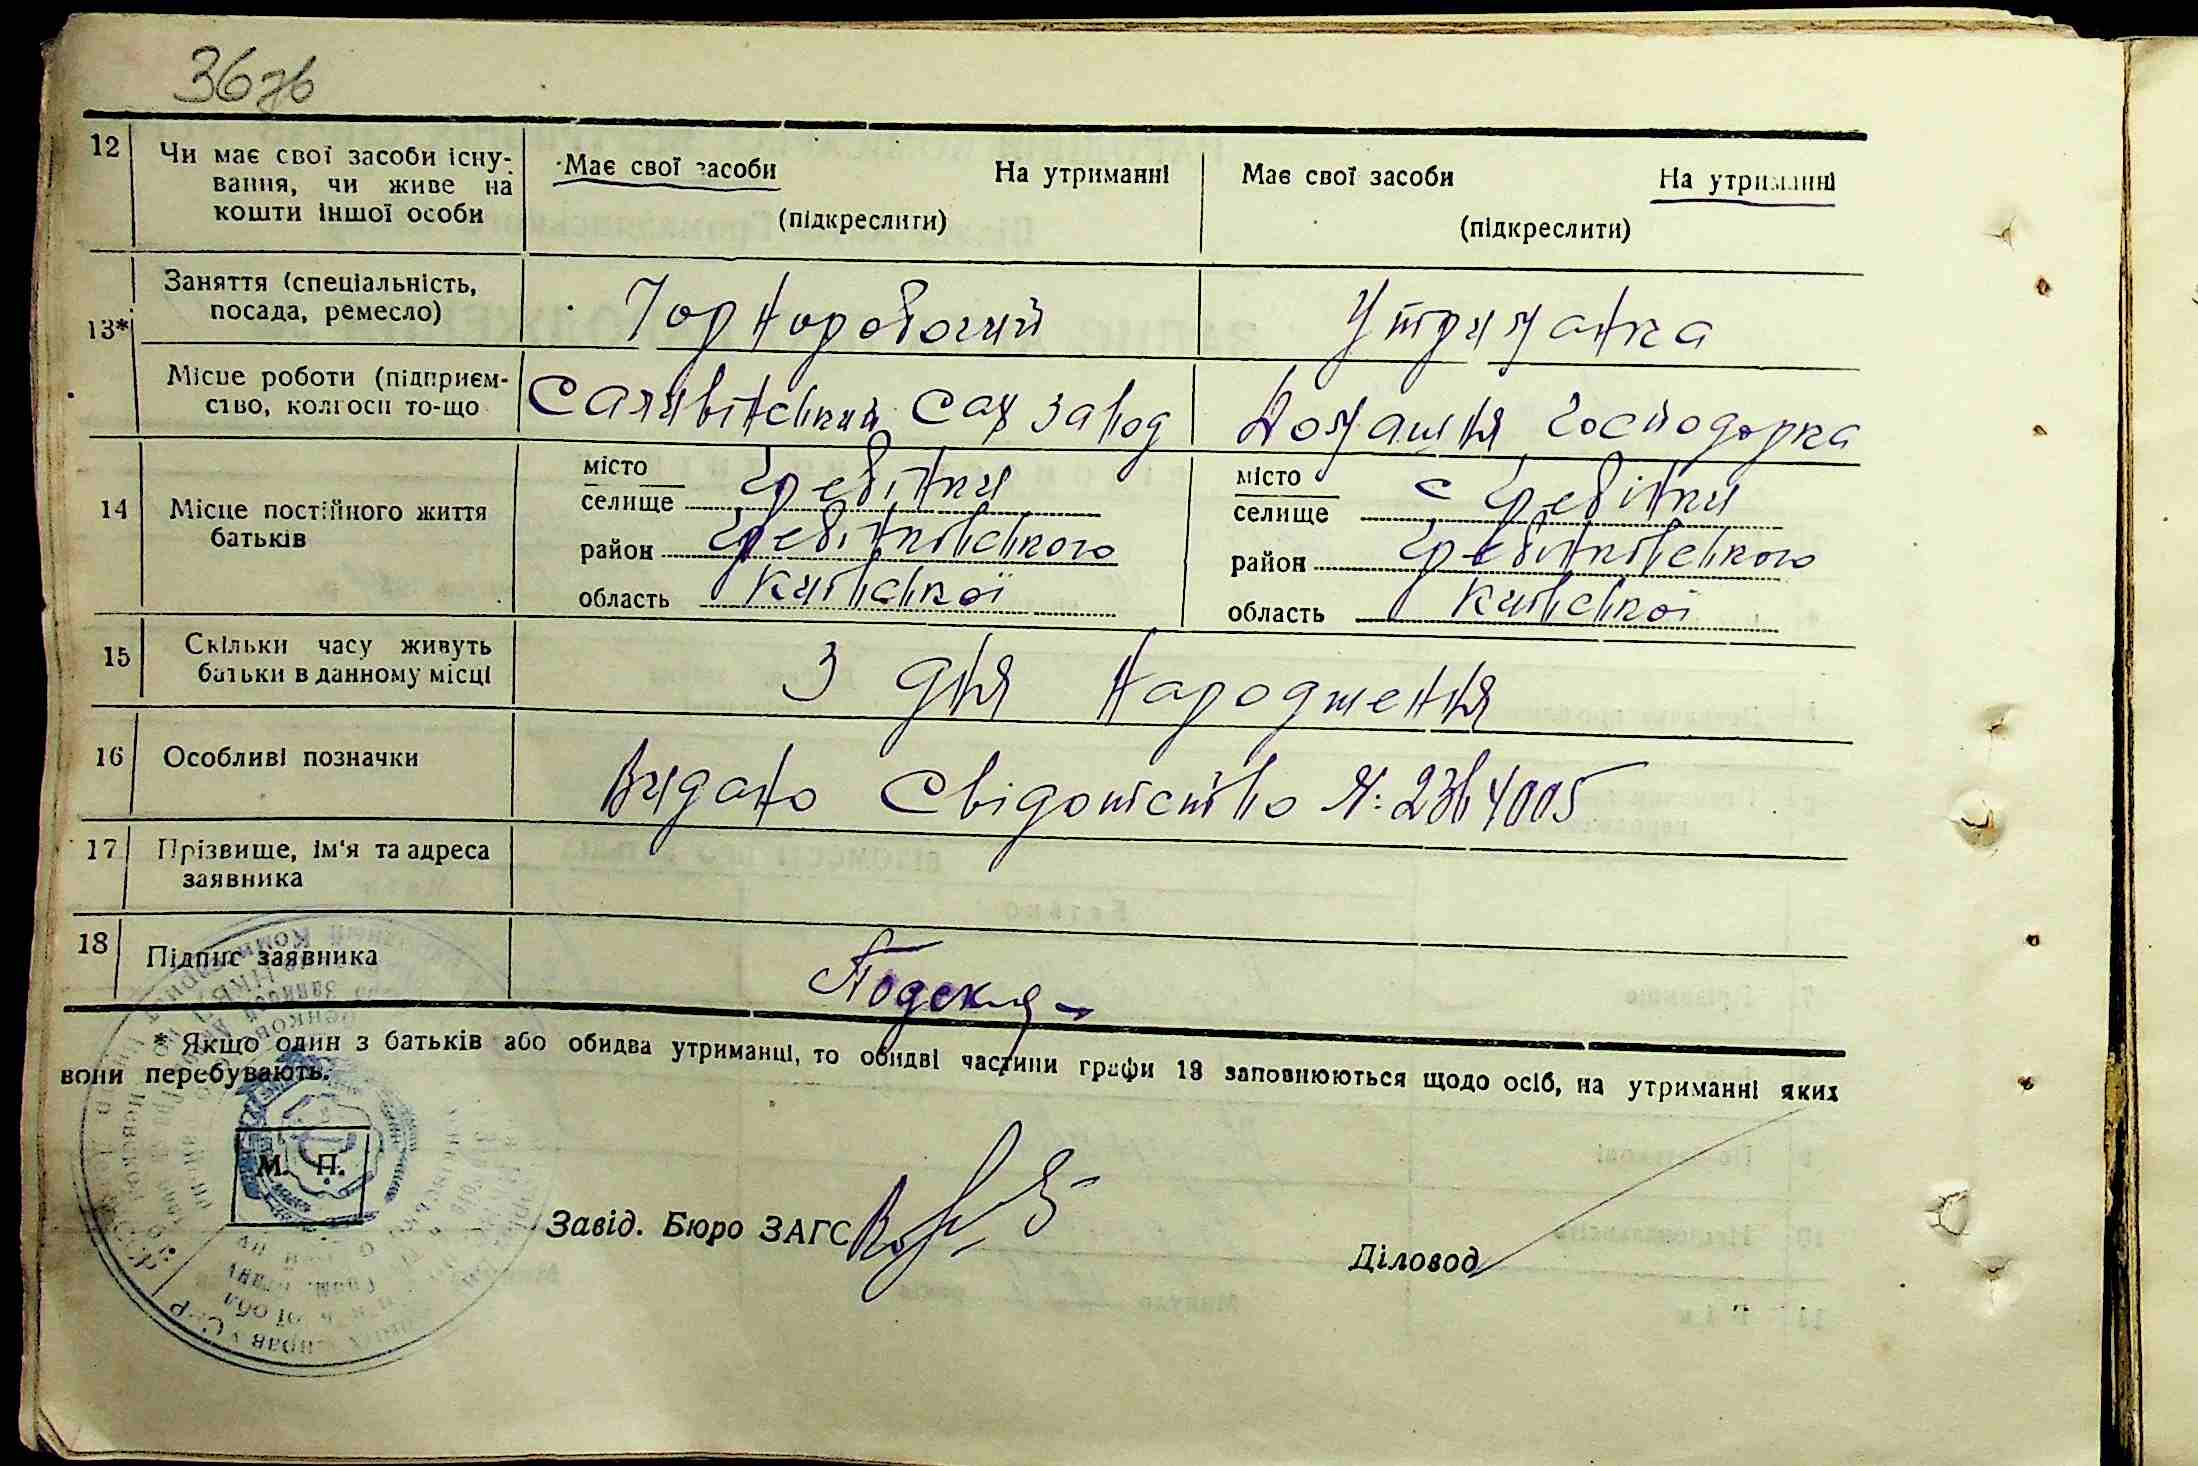 36зв
12 Чи має свої засоби існу-
вання, чи живе на
кошти іншої особи
Має свої засоби На утриманні
(підкреслити)
Має свої засоби На утриманні
(підкреслити)
13* Заняття (спеціальність,
посада, ремесло)
Чорноробочий
Утриманка
Місце роботи (підприєм-
ство, колгосп то-що
Саливінський Сах завод
Домашня господарка
14 Місце постійного життя
батьків
місто
селище Гребінки
район Гребінківського
область Київської
місто
селище с Гребінки
район Гребінківського
область Київської
15 Скільки часу живуть
батьки в данному місці
З дня народження
16 Особливі позначки
Видано Свідотство №
17 Прізвище, ім'я та адреса
заявника
18 Підпис заявника
* Якщо один з батьків або обидва утриманці, то обидві частини графи 13 заповнюються щодо осіб, на утриманні яких
вони перебувають.
М. П.
Завід. Бюро ЗАГС
Діловод